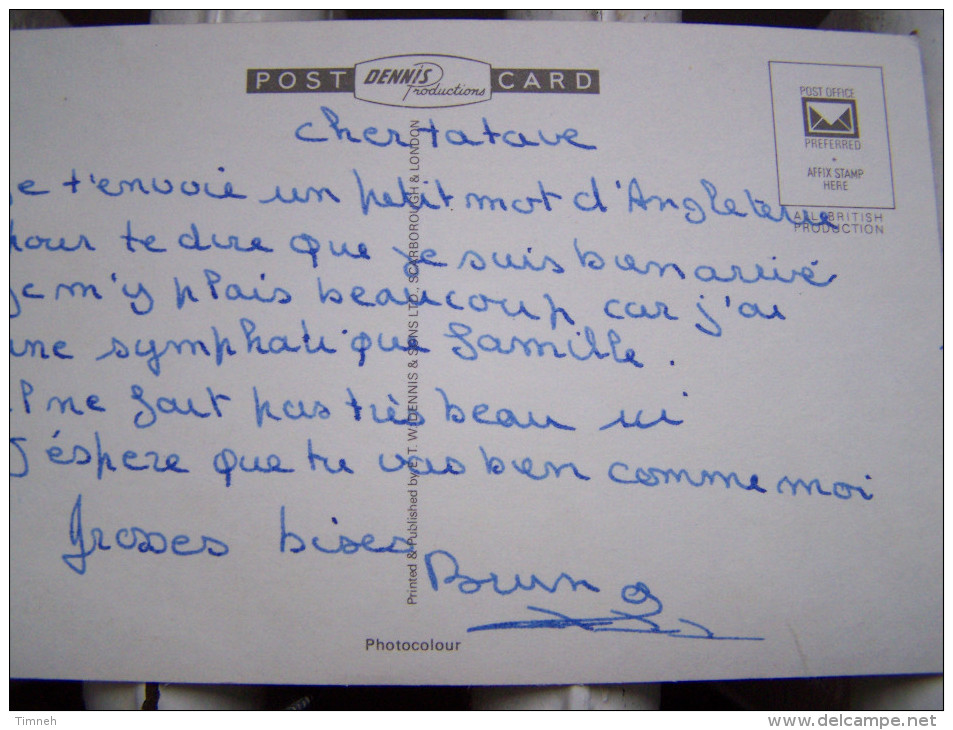 POST DENNIS Productions CARD
POST OFFICE
PREFERRED
AFFIX STAMP
HERE
ALL BRITISH
PRODUCTION
cher tatave
e t'envoie un petit mot d'Angleterre
pour te dire que je suis bien arrivé
je m'y plais beaucoup car j'ai
une symphatique famille.
il ne fait pas très beau ici
J'éspere que tu vas bien comme moi
Grosses bises
Bruno
Printed & Published by E. T. W. DENNIS & SONS LTD., SCARBOROUGH & LONDON
Photocolour
Timneh
www.delcampe.net